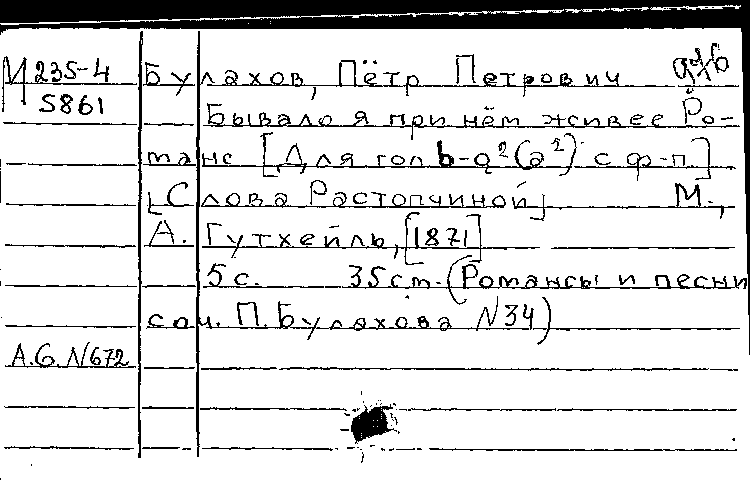 М 235-4 Булахов, Пётр Петрович
5861 Бывало я при нём живее Ро-
манс [Для гол b-g²(a²) с ф-п.]
[Слова Растопчиной]. М.,
А. Гутхейль, [1871]
5 с. 35 см. (Романсы и песни
соч. П. Булахова N 34)
А.G. N 672